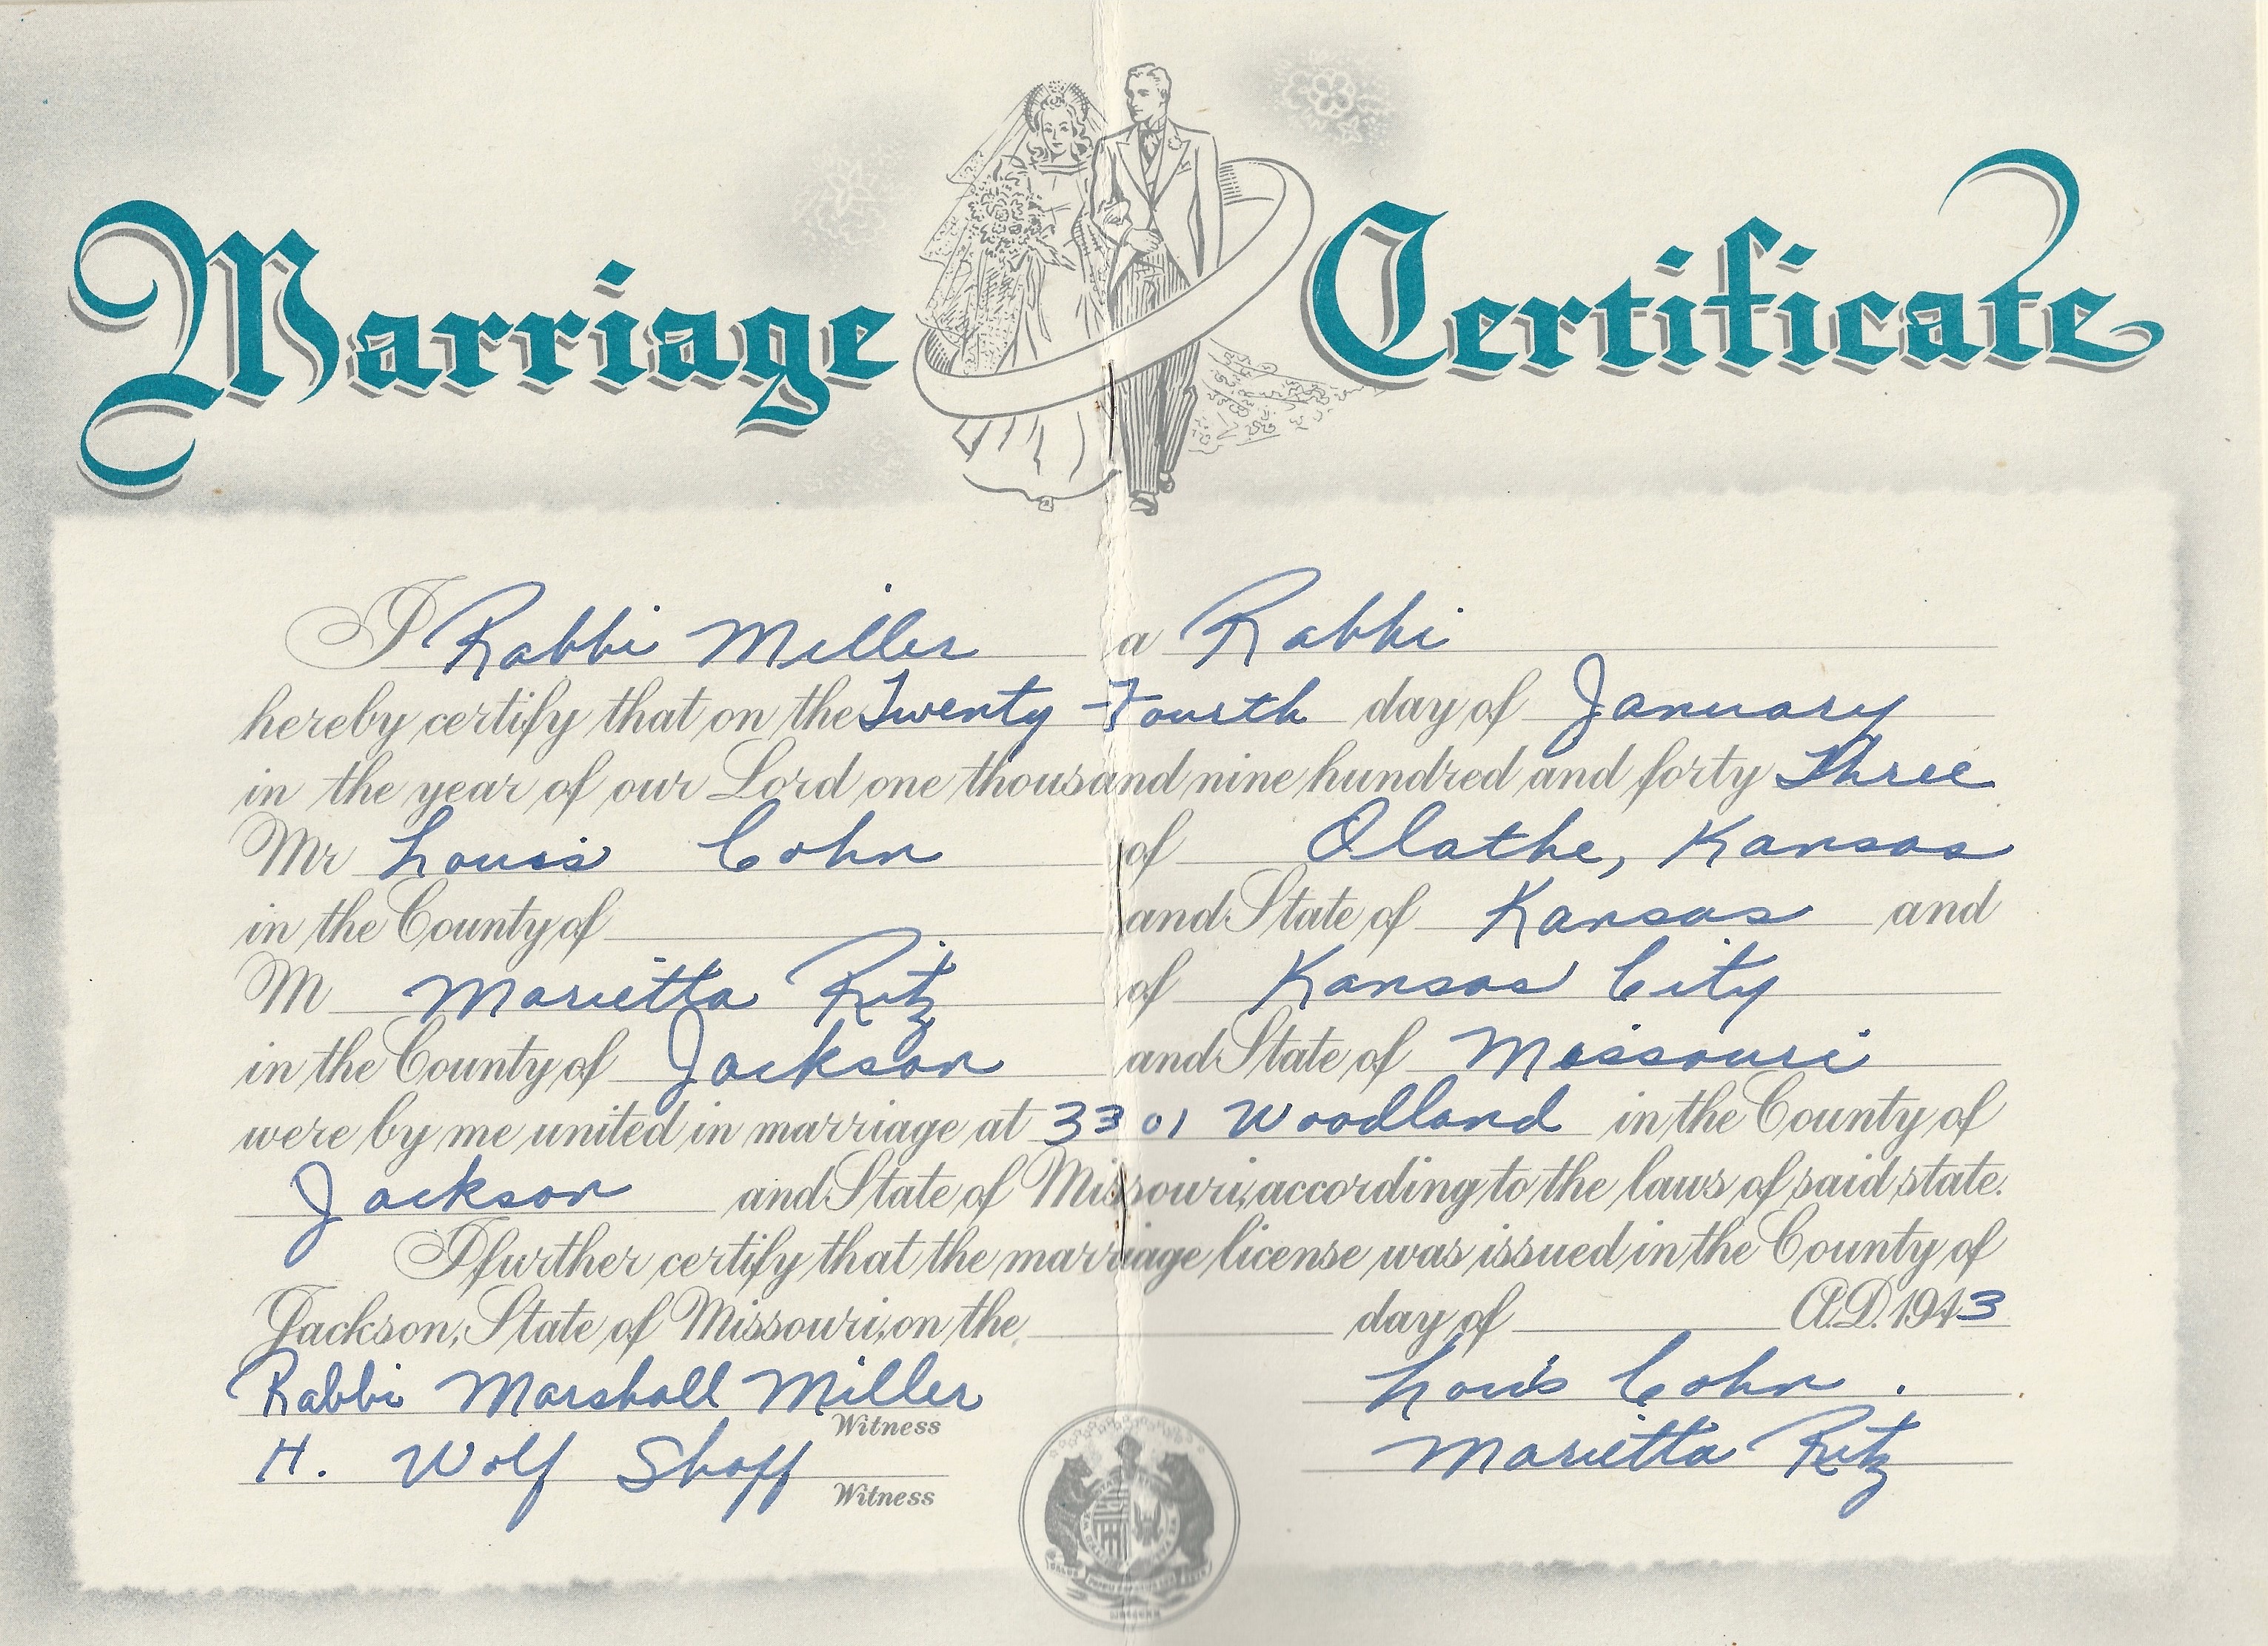 Marriage Certificate
I Rabbi Miller a Rabbi
hereby certify that on the Twenty-Fourth day of January
in the year of our Lord one thousand nine hundred and forty Three
Mr Louis Cohn of Olathe, Kansas
in the County of and State of Kansas and
M Marietta Ritz of Kansas City
in the County of Jackson and State of Missouri
were by me united in marriage at 3301 Woodland in the County of
Jackson and State of Missouri, according to the laws of said state.
I further certify that the marriage license was issued in the County of
Jackson, State of Missouri, on the day of A.D. 1943
Rabbi Marshall Miller Louis Cohn.
Witness
H. Wolf Shoff Marietta Ritz
Witness